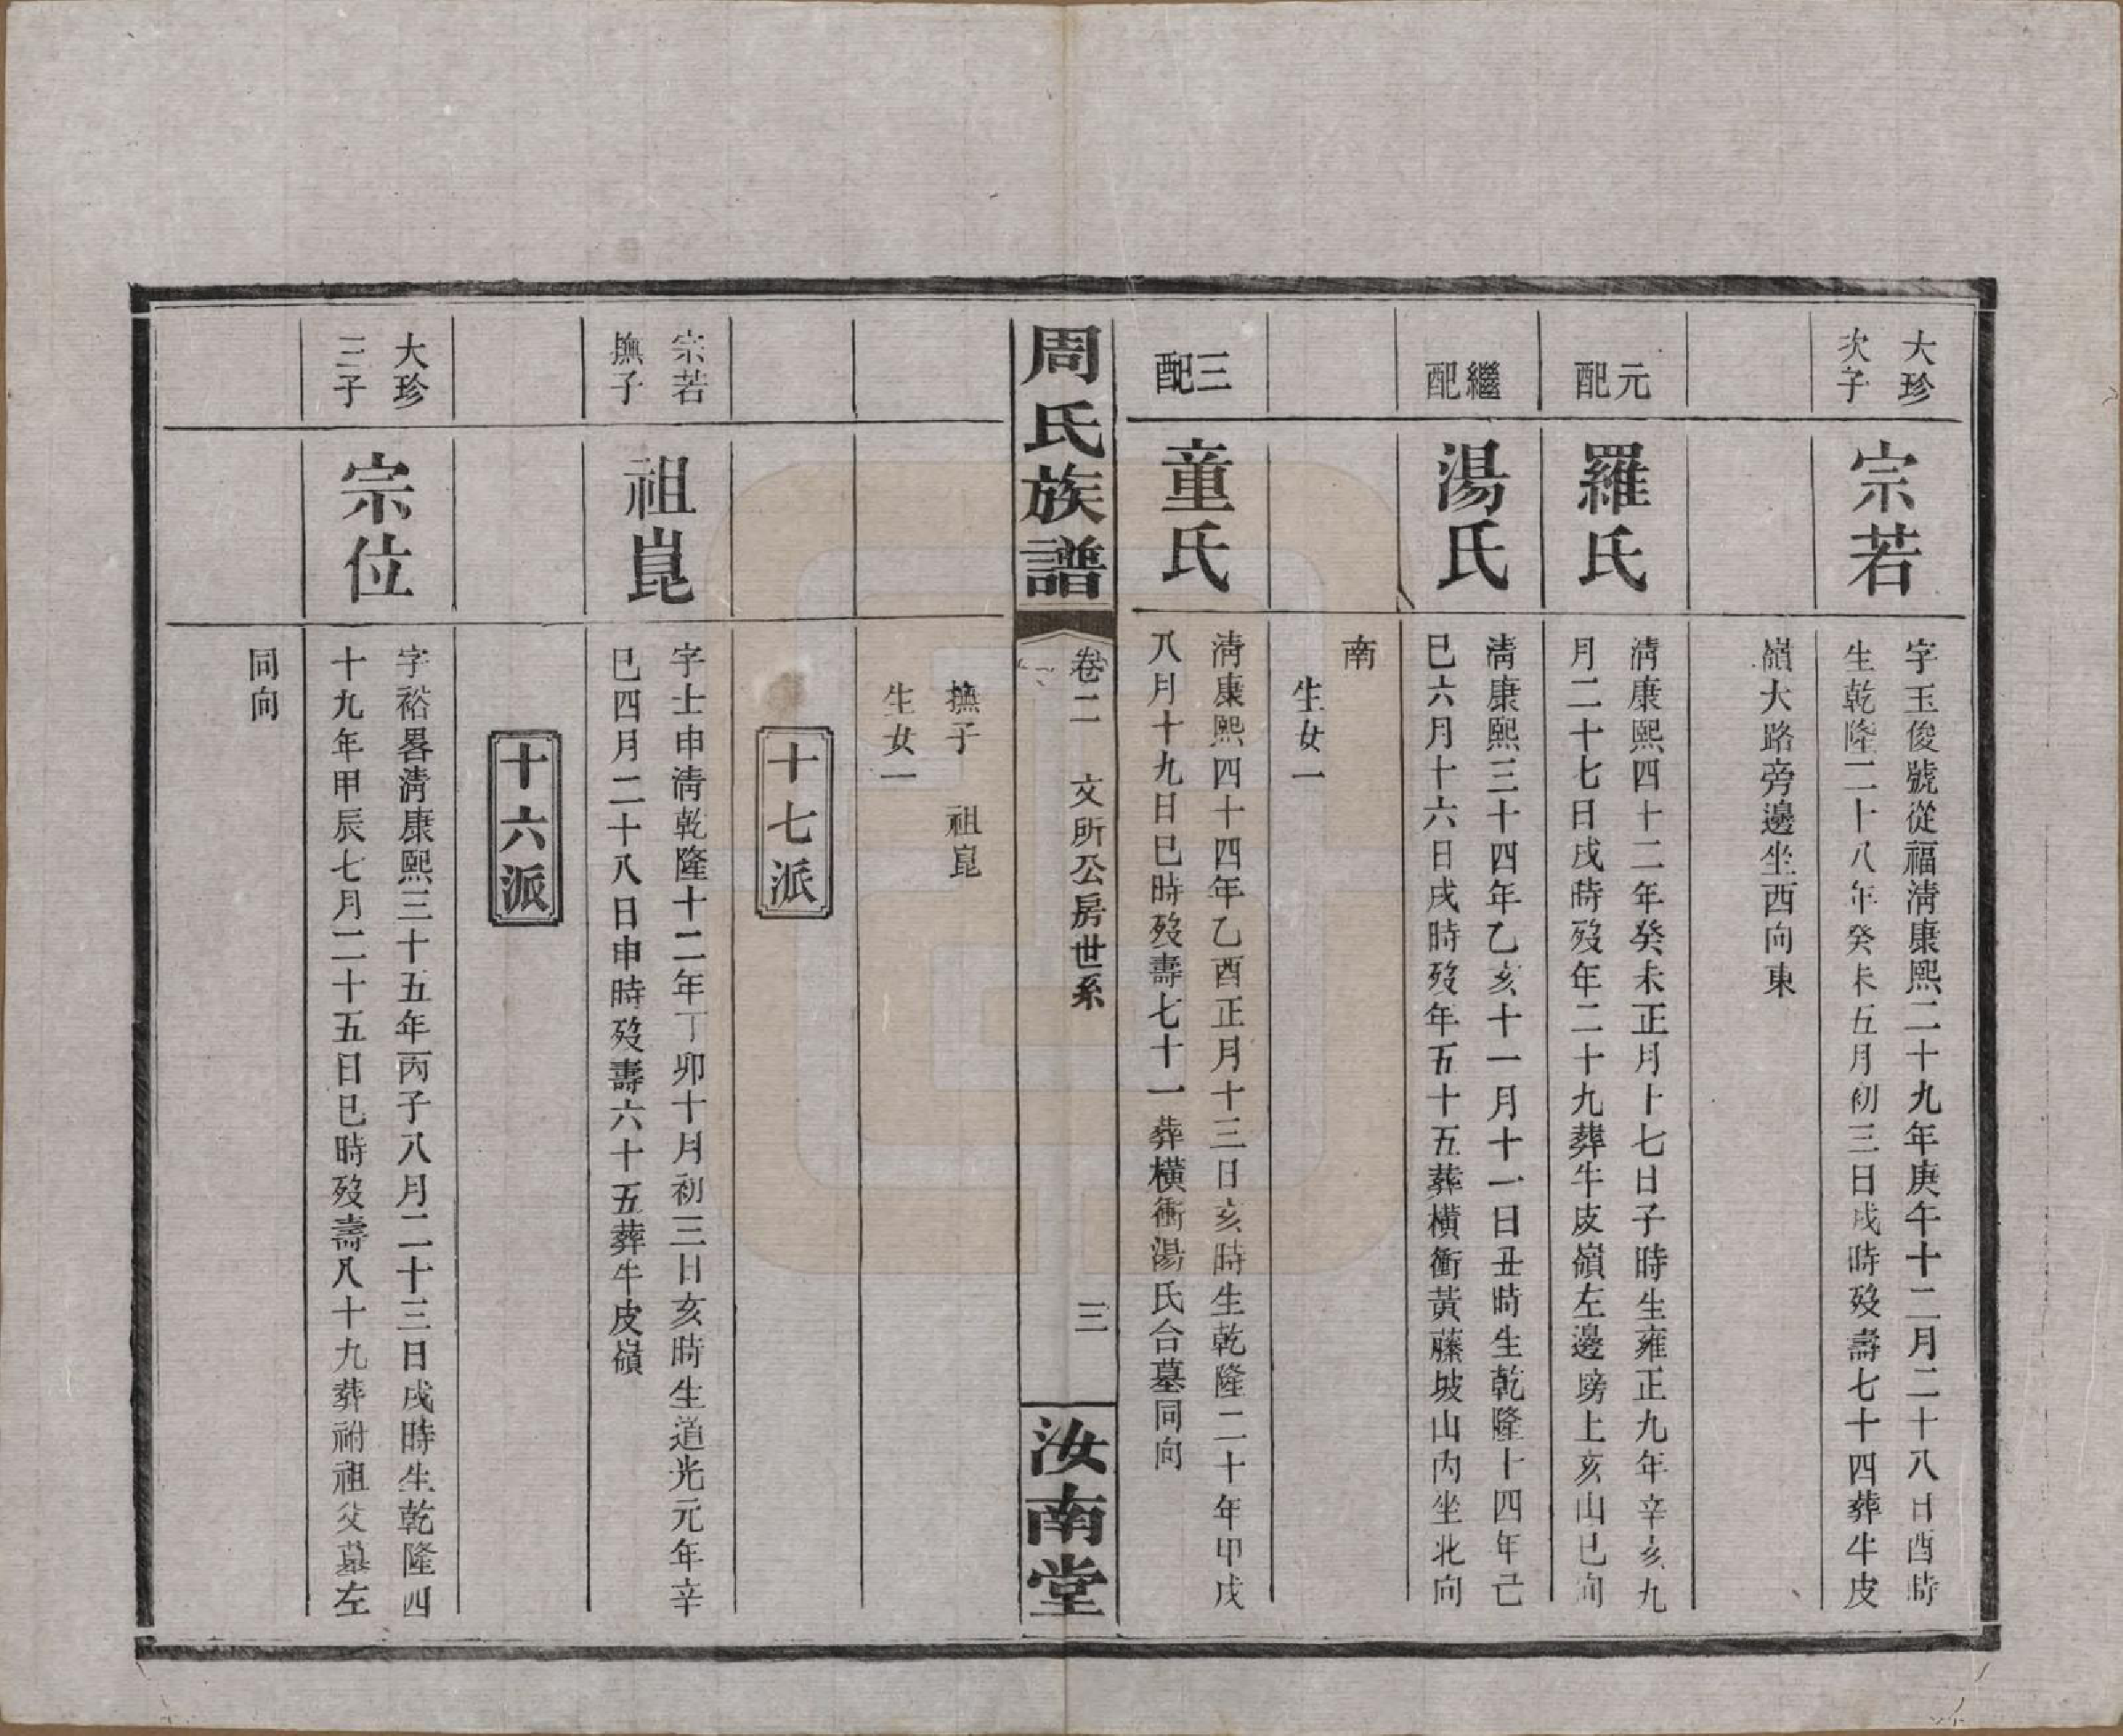 大珍
次子
宗若
字玉俊號從福淸康熙二十九年庚午十二月二十八日酉時
生乾隆二十八年癸未五月初三日戌時歿壽七十四葬牛皮
嶺大路旁邊坐西向東
元配
羅氏
淸康熙四十二年癸未正月十七日子時生雍正九年辛亥九
月二十七日戌時歿年二十九葬牛皮嶺左邊塝上亥山巳向
繼配
湯氏
淸康熙三十四年乙亥十一月十一日丑時生乾隆十四年己
巳六月十六日戌時歿年五十五葬橫衝黃藤坡山內坐北向
南
生女一
三配
童氏
淸康熙四十四年乙酉正月十三日亥時生乾隆二十年甲戌
八月十九日巳時歿壽七十一葬橫衝湯氏合墓同向
周氏族譜
卷二
文所公房世系
三
汝南堂
撫子 祖崑
生女一
十七派
宗若
撫子
祖崑
字士申淸乾隆十二年丁卯十月初三日亥時生道光元年辛
巳四月二十八日申時歿壽六十五葬牛皮嶺
十六派
大珍
三子
宗位
字裕畧淸康熙三十五年丙子八月二十三日戌時生乾隆四
十九年甲辰七月二十五日巳時歿壽八十九葬祔祖父墓左
同向